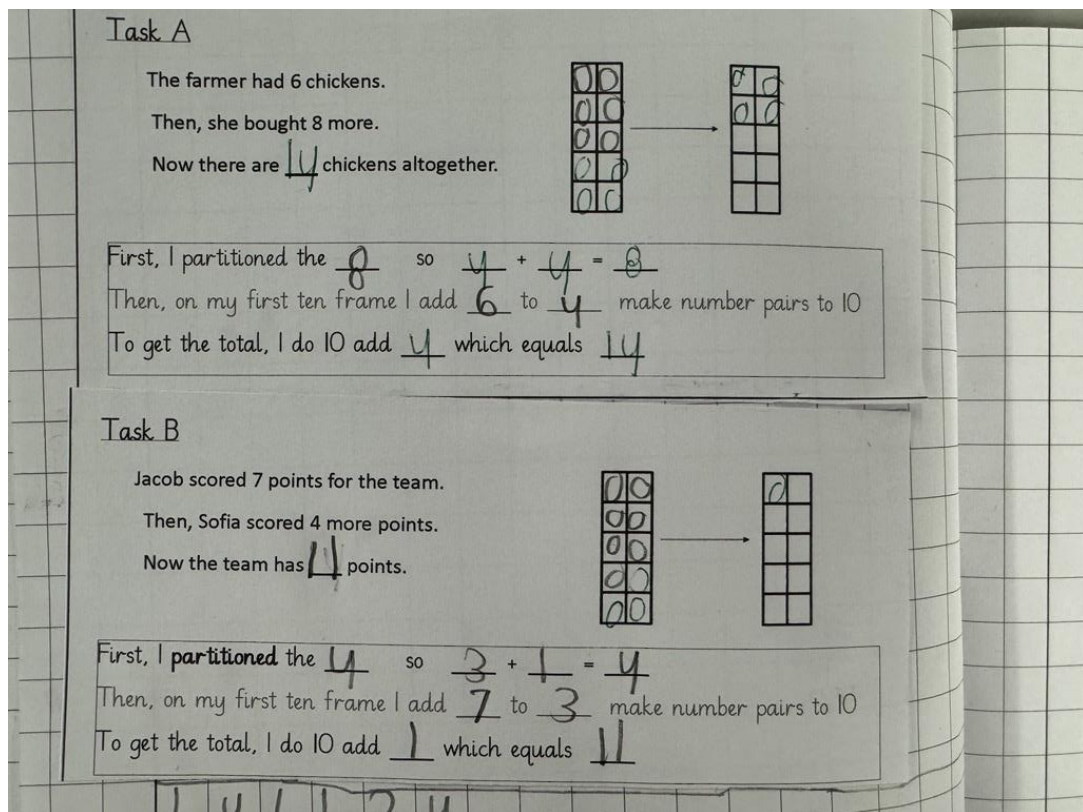 Task A
The farmer had 6 chickens.
Then, she bought 8 more.
Now there are 14 chickens altogether.
First, I partitioned the 8 so 4 + 4 = 8
Then, on my first ten frame I add 6 to 4 make number pairs to 10
To get the total, I do 10 add 4 which equals 14
Task B
Jacob scored 7 points for the team.
Then, Sofia scored 4 more points.
Now the team has 11 points.
First, I partitioned the 4 so 3 + 1 = 4
Then, on my first ten frame I add 7 to 3 make number pairs to 10
To get the total, I do 10 add 1 which equals 11